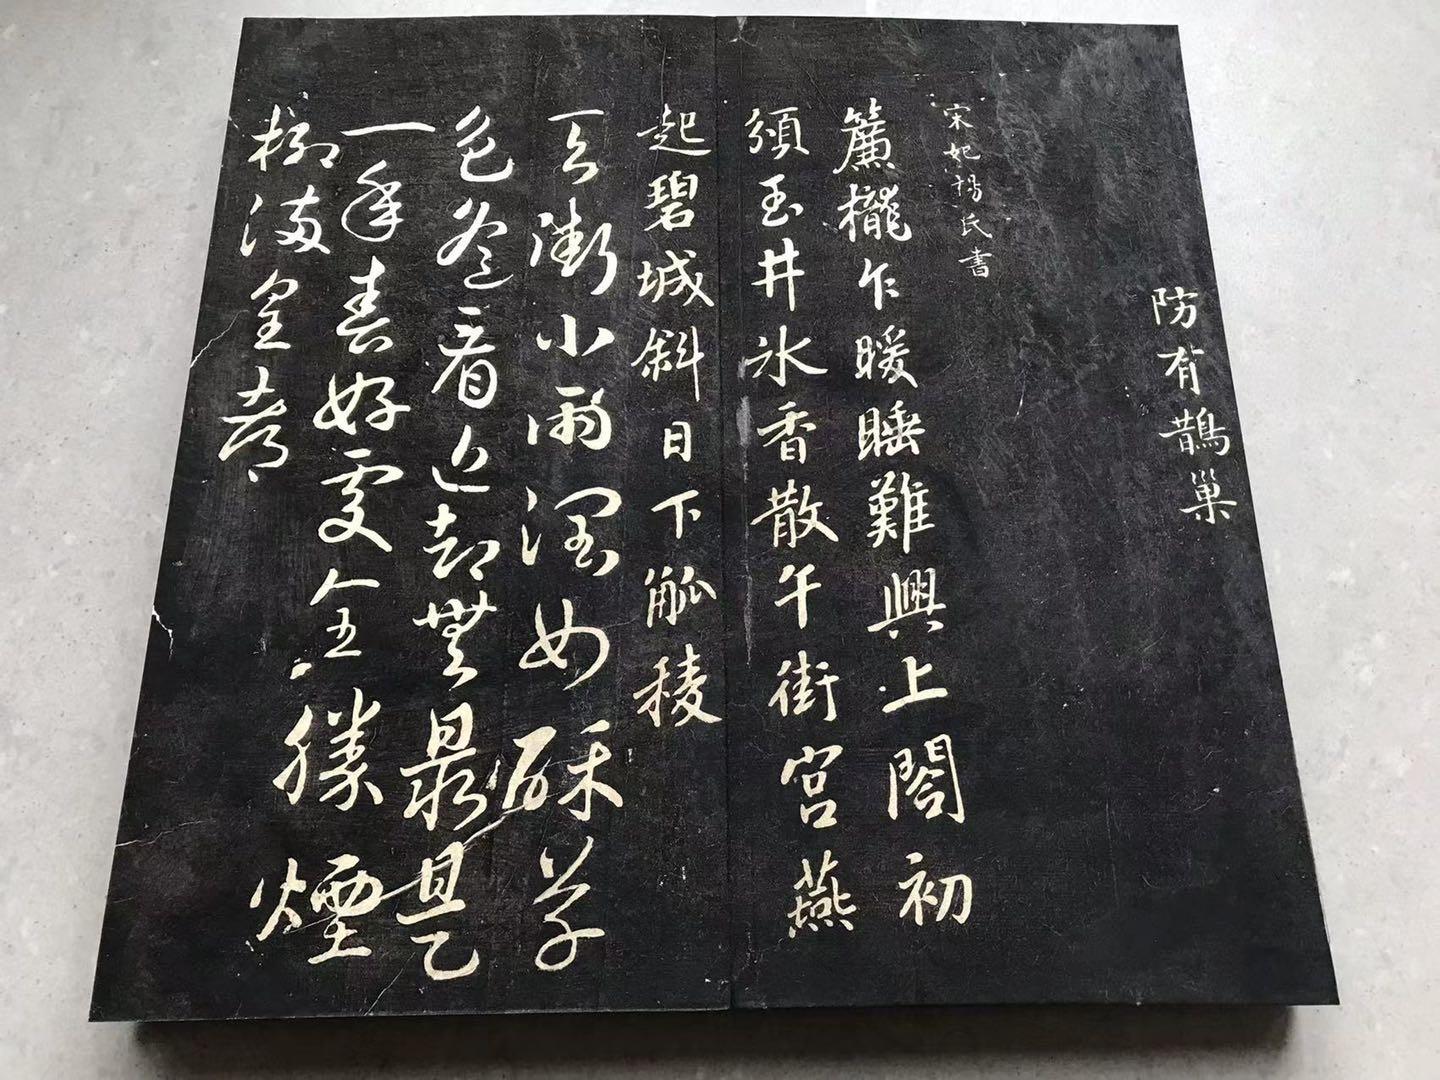 防有鵲巢
宋妃楊氏書
簾櫳乍暖睡難興上閣初
須玉井氷香散午街宮燕
起碧城斜日下觚稜
天街小雨潤如酥草
色遙看近却無最是
一年春好處全勝煙
柳滿皇都